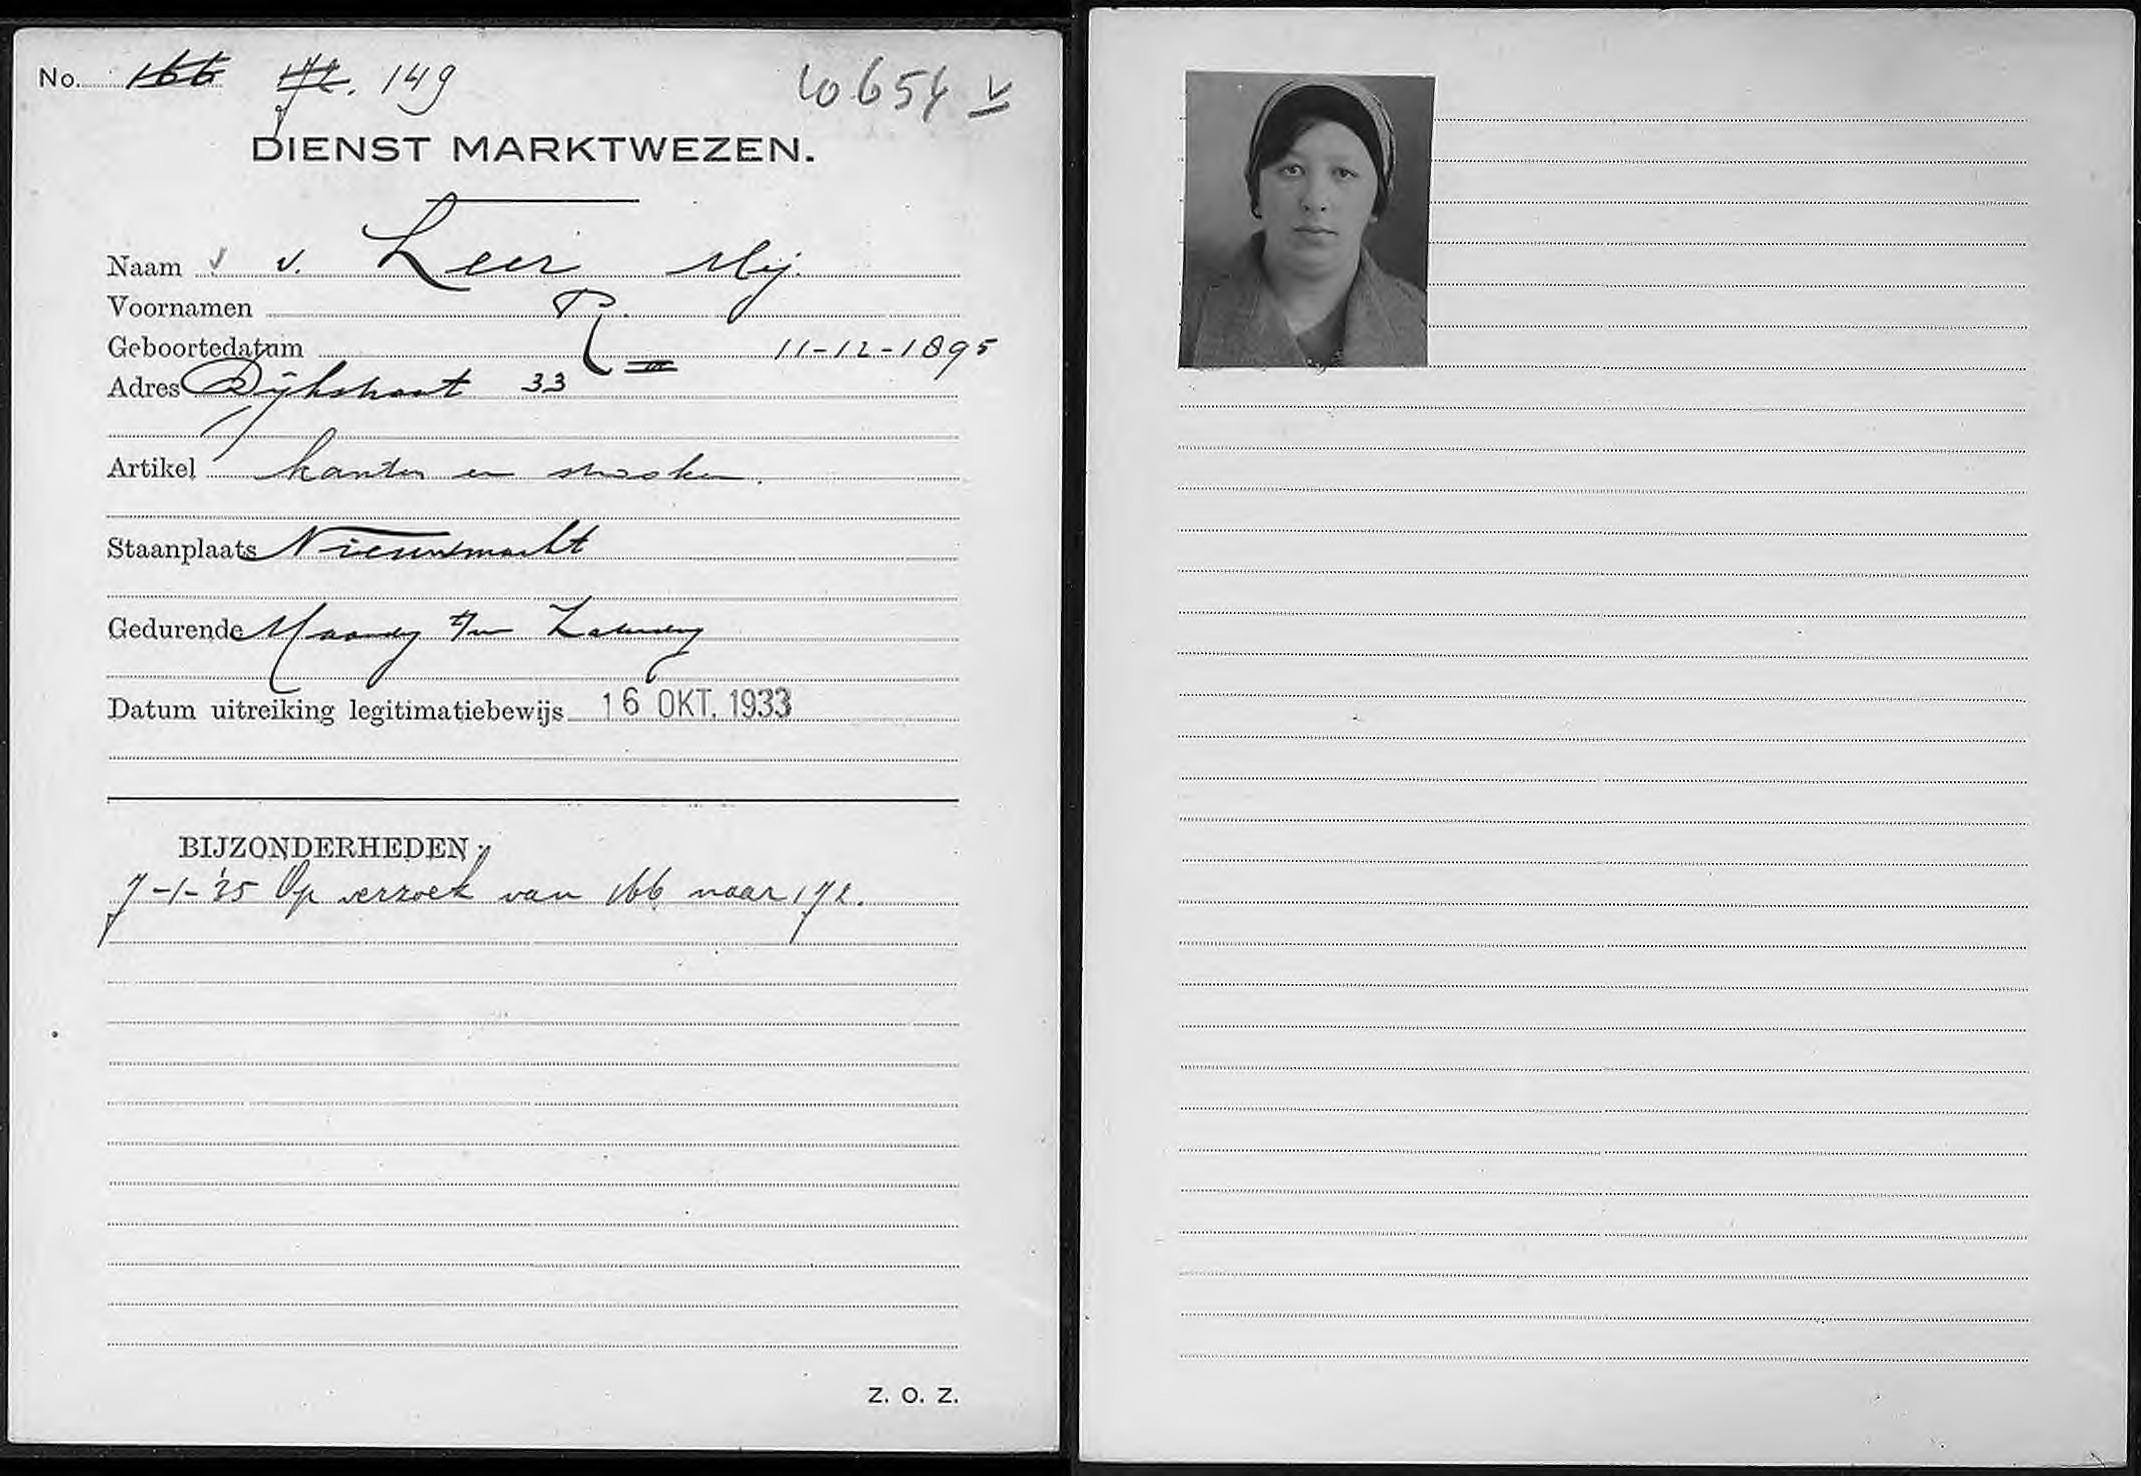 No. 166 172. 149 10654 V
DIENST MARKTWEZEN.
Naam v. Leer Mej.
Voornamen R.
Geboortedatum 11-12-1895
Adres Dijkstraat 33 III
Artikel kanten en stroken.
Staanplaats Nieuwmarkt
Gedurende Maandag t/m Zaterdag
Datum uitreiking legitimatiebewijs 16 OKT. 1933
BIJZONDERHEDEN:
7-1-'35 Op verzoek van 166 naar 172.
Z. O. Z.